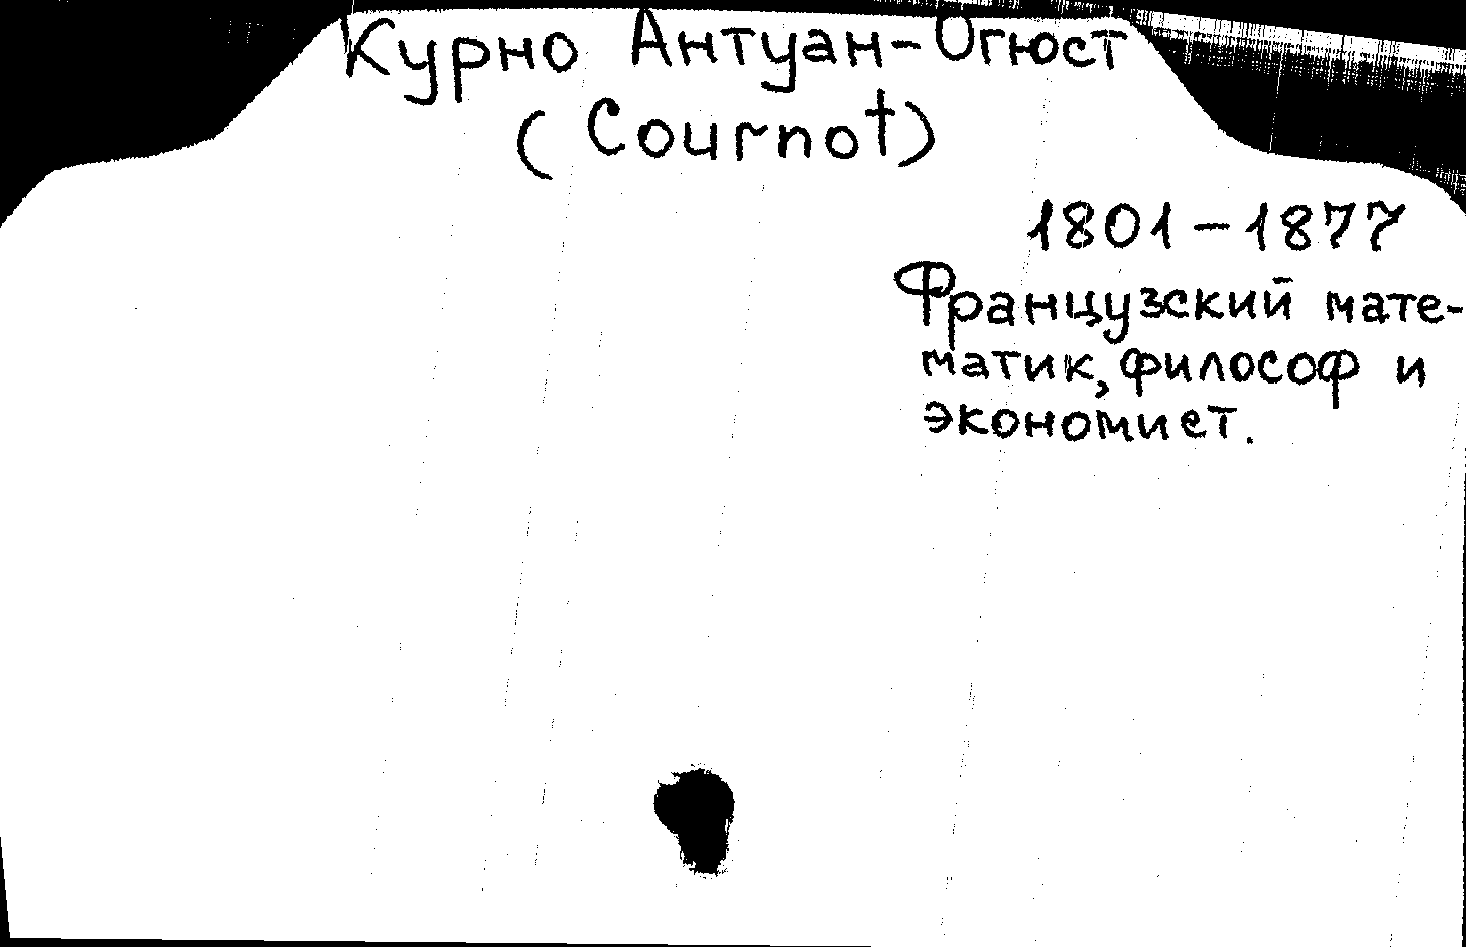 Курно Антуан-Огюст
(Cournot)
1801-1877
Французский мате-
матик, философ и
экономист.